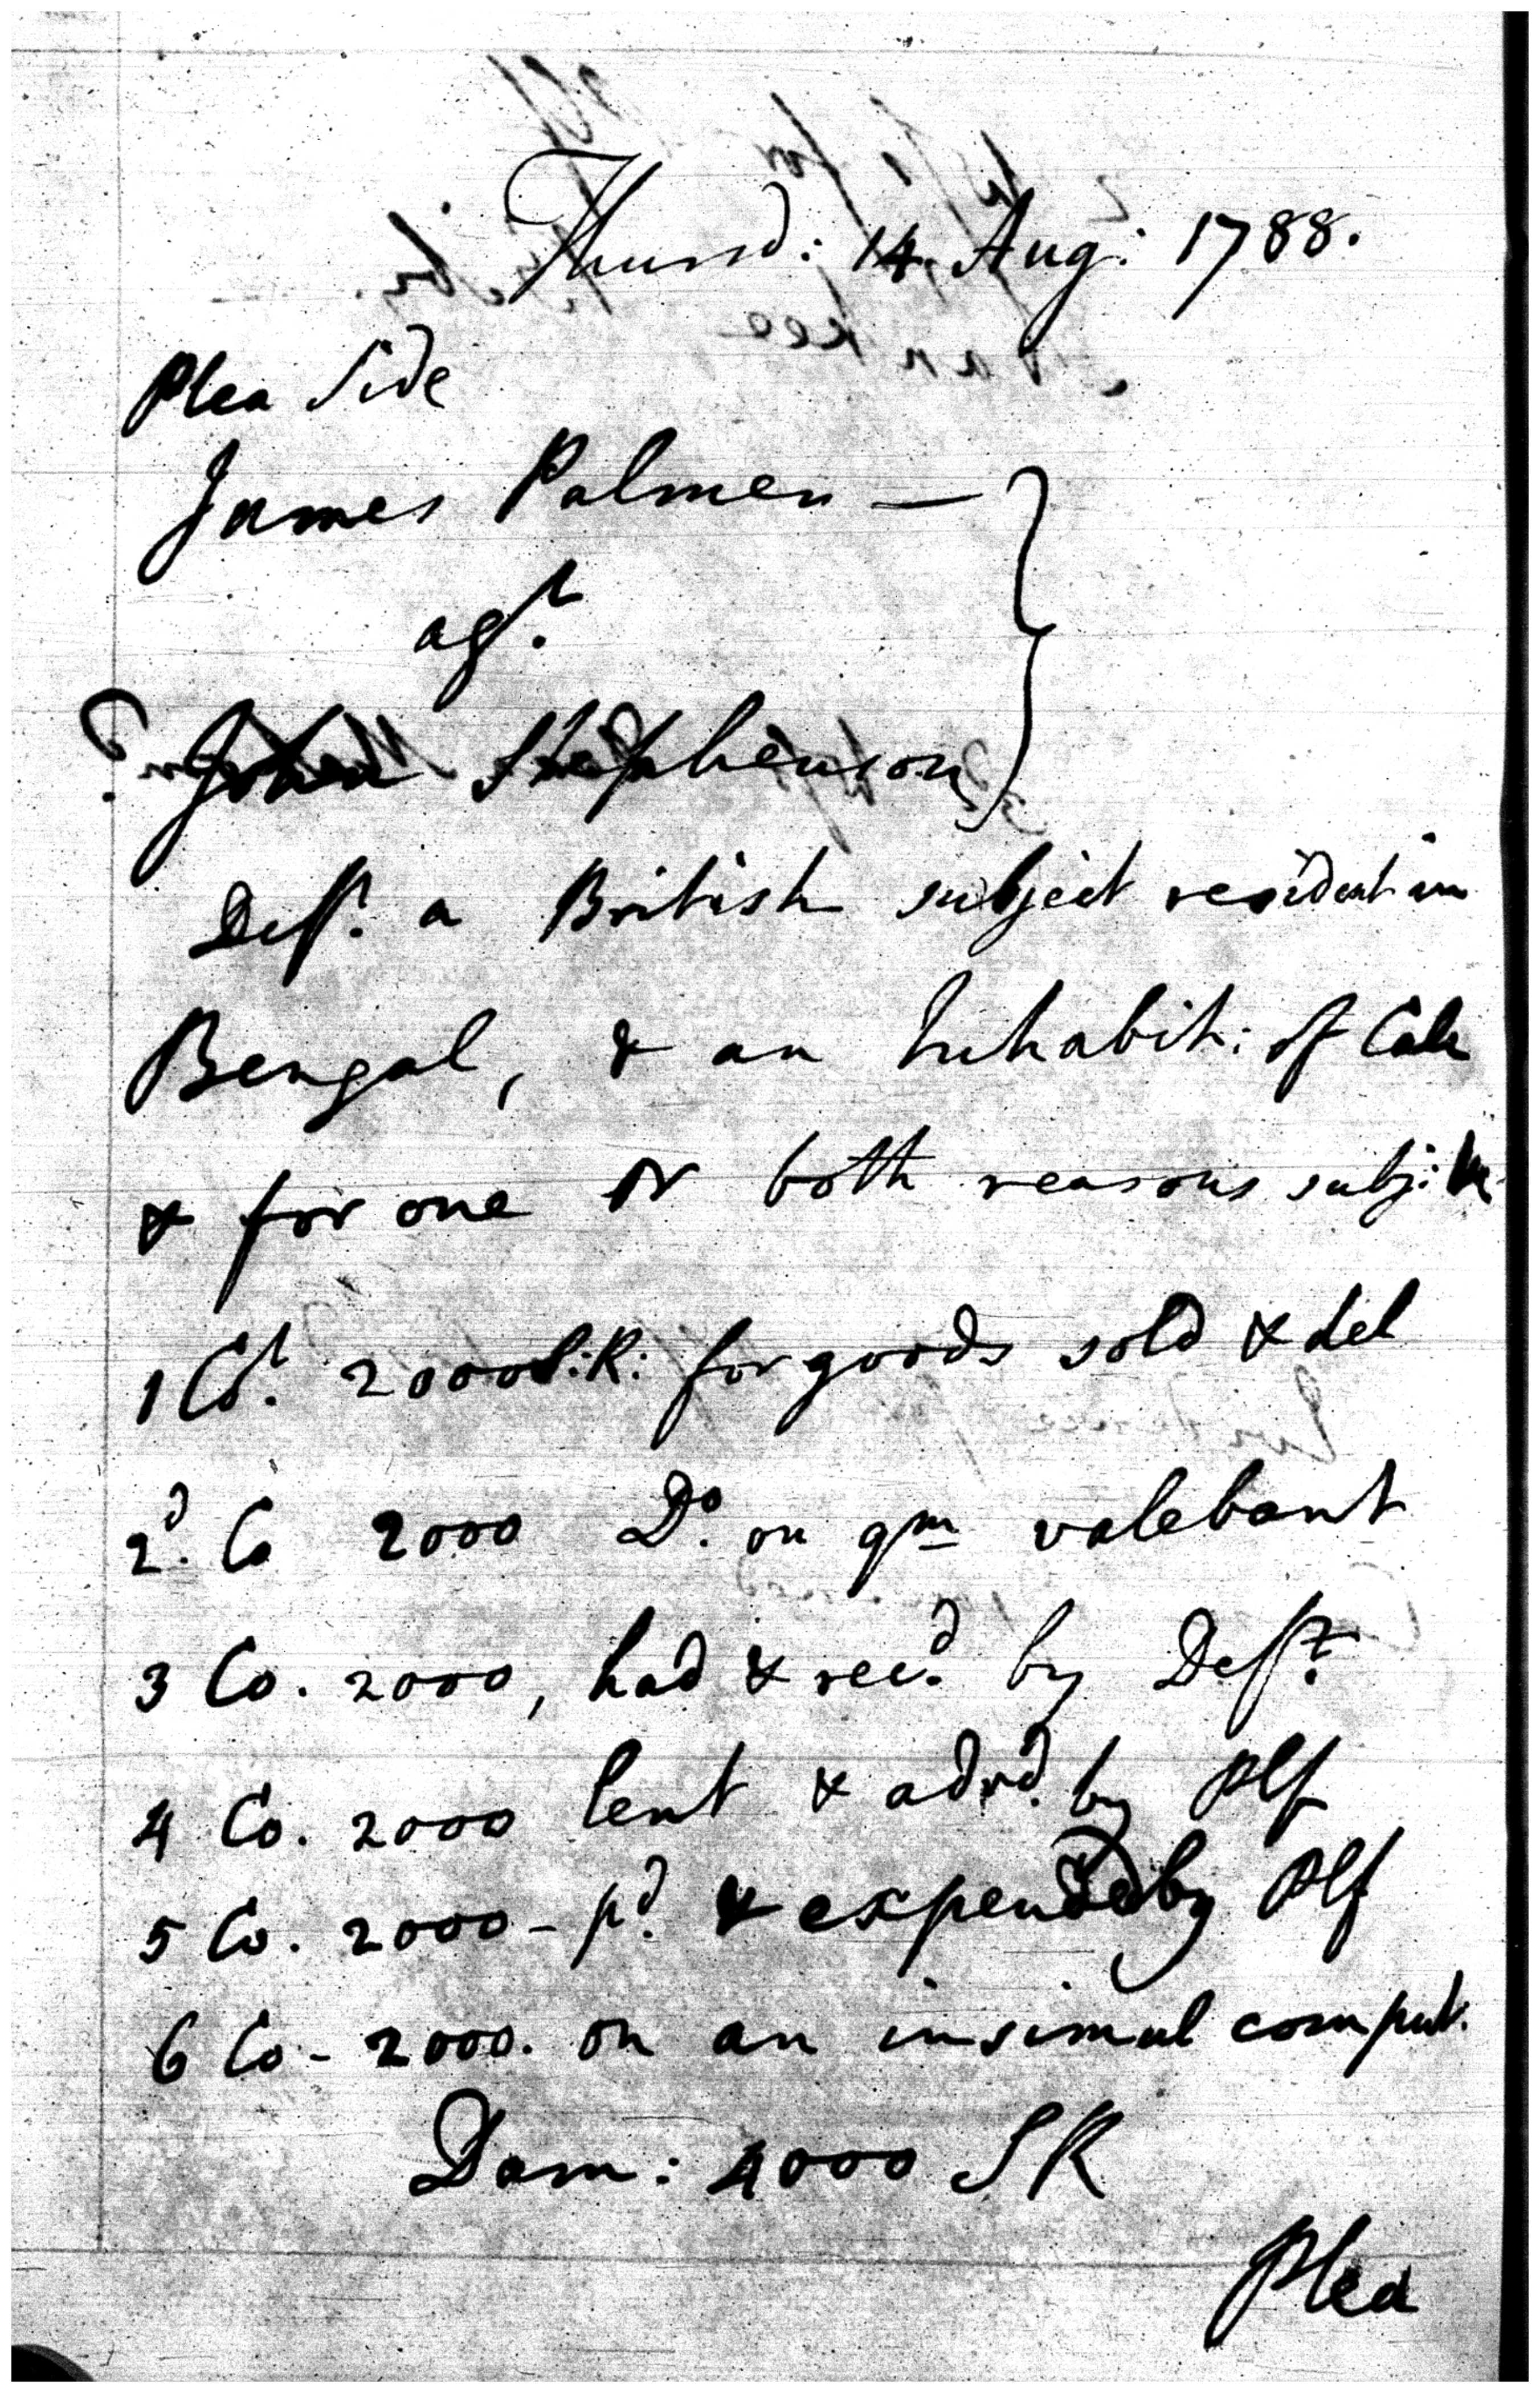 Thursd: 14. Aug: 1788.
Plea Side
James Palmer —
agt.
John Stephenson
Deft. a British subject resident in
Bengal, & an Inhabit: of Calc
& for one or both reasons subj: &c
1 Ct. 2000 S:R: for goods sold & del
2d. Co 2000 Do. on qm valebant
3 Co. 2000, had & recd. by Deft.
4 Co. 2000 lent & advd. by Plf
5 Co. 2000 - pd. & expended by Plf
6 Co - 2000. on an insimul comput.
Dam: 4000 SR
Plea